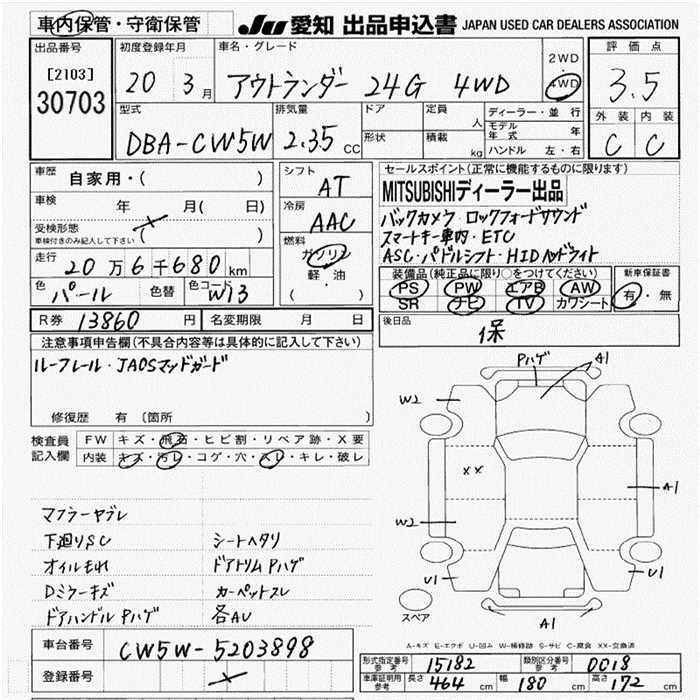 車内保管・守衛保管
JU 愛知 出品申込書 JAPAN USED CAR DEALERS ASSOCIATION
出品番号
[2103]
30703
初度登録年月
20 3月
車名・グレード
アウトランダー 24G 4WD
2WD
4WD
評価点
3.5
外装 内装
C C
型式
DBA-CW5W
排気量
2.35 CC
ドア
形状
定員 人
積載 kg
ディーラー・並行
モデル年式 年
ハンドル 左・右
車歴
自家用・( )
車検 年 月( 日)
受検形態
車検付きのみ記入して下さい ( )
走行
20万6千680km
色
パール
色替
色コード
W13
シフト
AT
冷房
AAC
燃料
ガソリン
軽・油
( )
セールスポイント(正常に機能するものに限ります)
MITSUBISHIディーラー出品
バックカメラ・ロックフォードサウンド
スマートキー車内・ETC
ASC・パドルシフト・HIDヘッドライト
装備品(純正品に限り○をつけてください)
PS PW エアB AW
SR ナビ TV カワシート
新車保証書
有・無
R券 13860円
名変期限 月 日
後日品
保
注意事項申告欄(不具合内容等は具体的に記入して下さい)
ルーフレール・JAOSマッドガード
修復歴 有 〔箇所 〕
検査員
記入欄
FW キズ・飛石・ヒビ割・リペア跡・X要
内装 キズ・汚レ・コゲ・穴・スレ・キレ・破レ
マフラーヤブレ
下廻りSC
シートヘタリ
オイルモれ
ドアトリムPハゲ
Dミラーキズ
カーペットスレ
ドアハンドルPハゲ
各AU
Pハゲ
A1
W2
XX
A1
W2
U1
U1
スペア
A1
A-キズ E-エクボ U-凹み W-補修跡 S-サビ C-腐食 XX-交換済
車台番号
CW5W-5203898
登録番号
形式指定番号参考
15182
類別区分番号参考
0018
車庫証明用参考
長さ 464 cm
幅 180 cm
高さ 172 cm